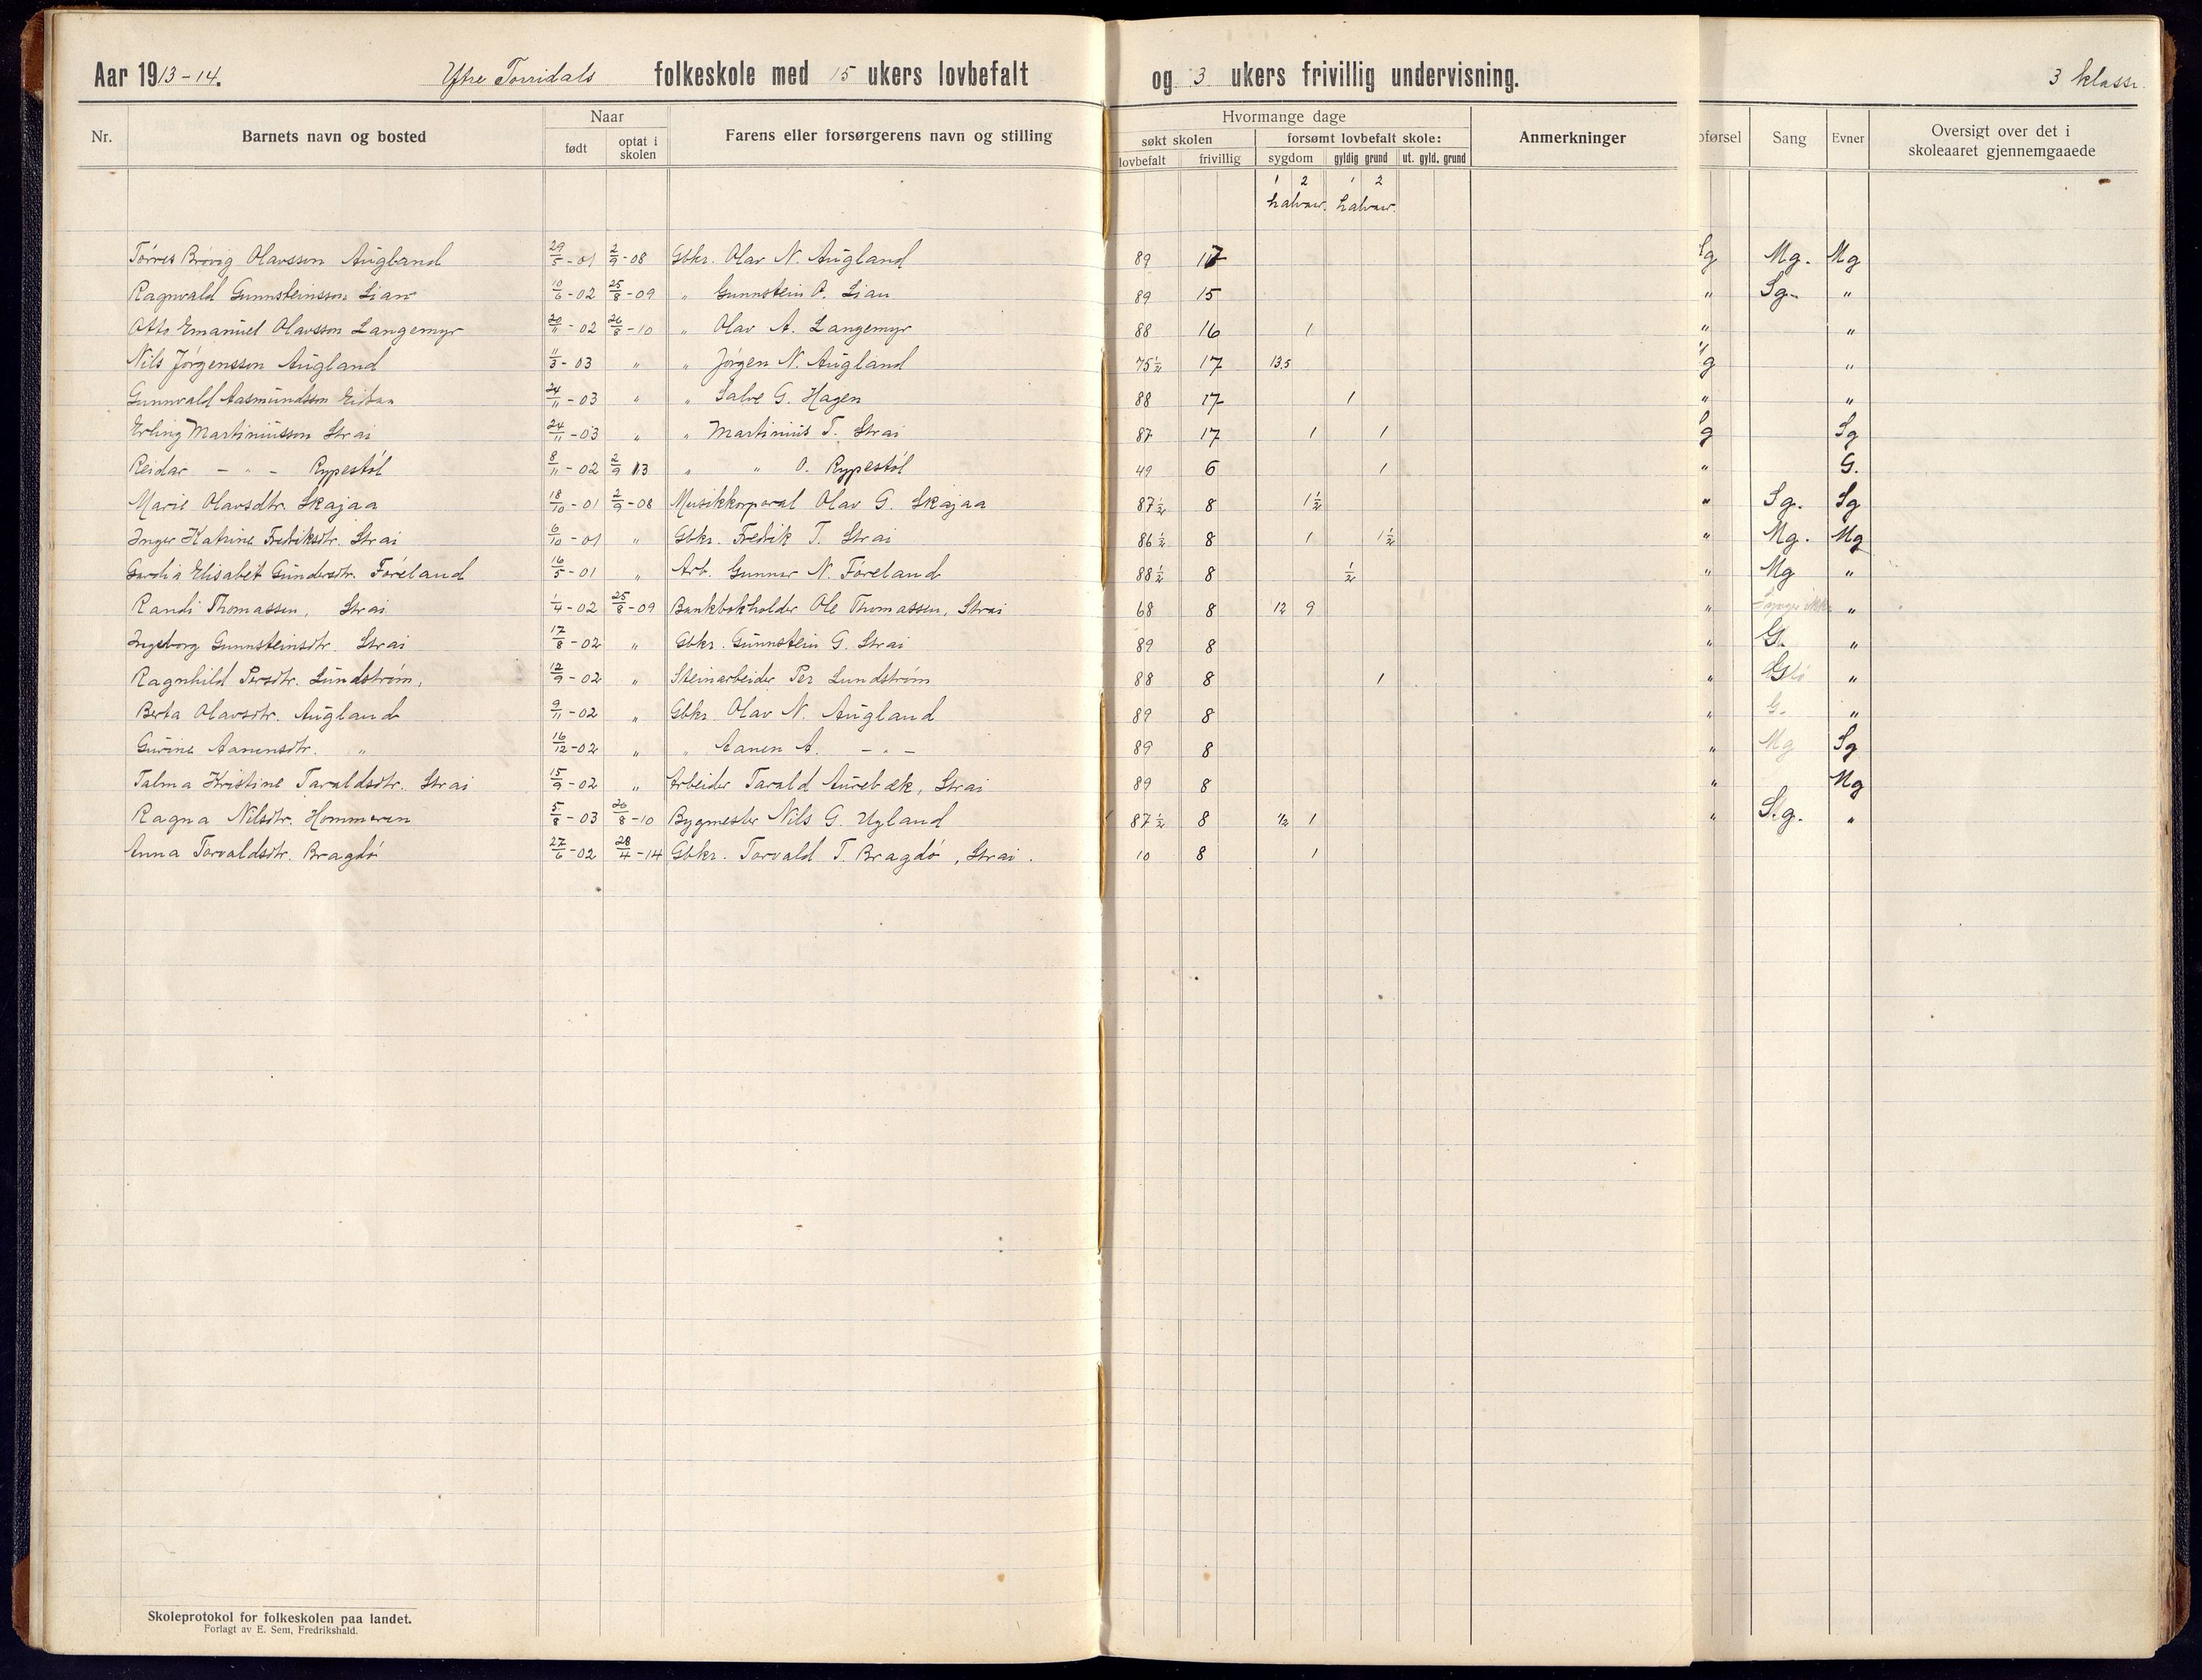 Aar 1913-14. Ytre Torridals folkeskole med 15 ukers lovbefalt og 3 ukers frivillig undervisning. 3 klasse.
Naar Hvormange dage
Nr. Barnets navn og bosted født optat i skolen Farens eller forsørgerens navn og stilling søkt skolen forsømt lovbefalt skole: Anmerkninger Sang Evner Oversigt over det i skoleaaret gjennemgaaede
lovbefalt frivillig sygdom gyldig grund ut. gyld. grund
1 2 1 2
halvaar. halvaar.
Tórres Brovig Olavsson Augland 29/5-01 2/9-08 Gbkr. Olav N. Augland 89 17 Mg. Mg
Ragnvald Gunnsteinsson Lian 10/6-02 25/8-09 " Gunnstein A. Lian 89 15 " Sg. "
Otto Emanuel Olavsson Langemyr 20/11-02 26/8-10 " Olav A. Langemyr 88 16 1 " "
Nils Jórgensson Augland 11/3-03 " " Jórgen N. Augland 75½ 17 13,5 "
Gunnvald Aasmundsson 24/11-03 " " Salve G. Hagen 88 17 1 " "
Erling Martiniusson Strai 24/11-03 " " Martinius T. Strai 87 17 1 1 Sg
Reidar - " - Rypestól 8/11-02 2/9 13 " " O. Rypestól 49 6 1 " G.
Marie Olavsdtr. Skajaa 18/10-01 2/9-08 Musikkorporal Olav G. Skajaa 87½ 8 1½ " Sg. Sg
Inger Katrine Fredriksdtr. Strai 6/10-01 " Gbkr. Fredrik T. Strai 86½ 8 1 1½ " Mg. Mg
Elisabet Gundersdtr. Fóreland 16/5-01 " Arb. Gunnar N. Fóreland 88½ 8 ½ " Mg "
Randi Thomassen, Strai 1/4-02 25/8-09 Bankbokholder Ole Thomassen, Strai 68 8 12 9 " "
Ingeborg Gunnsteinsdtr. Strai 17/8-02 " Gbkr. Gunnstein G. Strai 89 8 " G. "
Ragnhild Persdtr. Lundstróm, 12/9-02 " Steinarbeider Per Lundstróm 88 8 1 " "
Berta Olavsdtr. Augland 9/11-02 " Gbkr. Olav N. Augland 89 8 " G. "
Gurine Aanensdtr. " 16/12-02 " " Aanen A. - " - 89 8 " Mg Sg
Talma Kristine Taraldsdtr. Strai 15/9-02 " Arbeider Tarald Aurebæk, Strai 89 8 " Mg
Ragna Nilsdtr. Hommeren 5/8-03 26/8-10 Bygmester Nils G. Ugland 87½ 8 ½ 1 " S.g. "
Anna Torvaldsdtr. Bragdó 27/6-02 28/4-14 Gbkr. Torvald T. Bragdó, Strai. 10 8 1
Skoleprotokol for folkeskolen paa landet.
Forlagt av E. Sem, Fredrikshald.